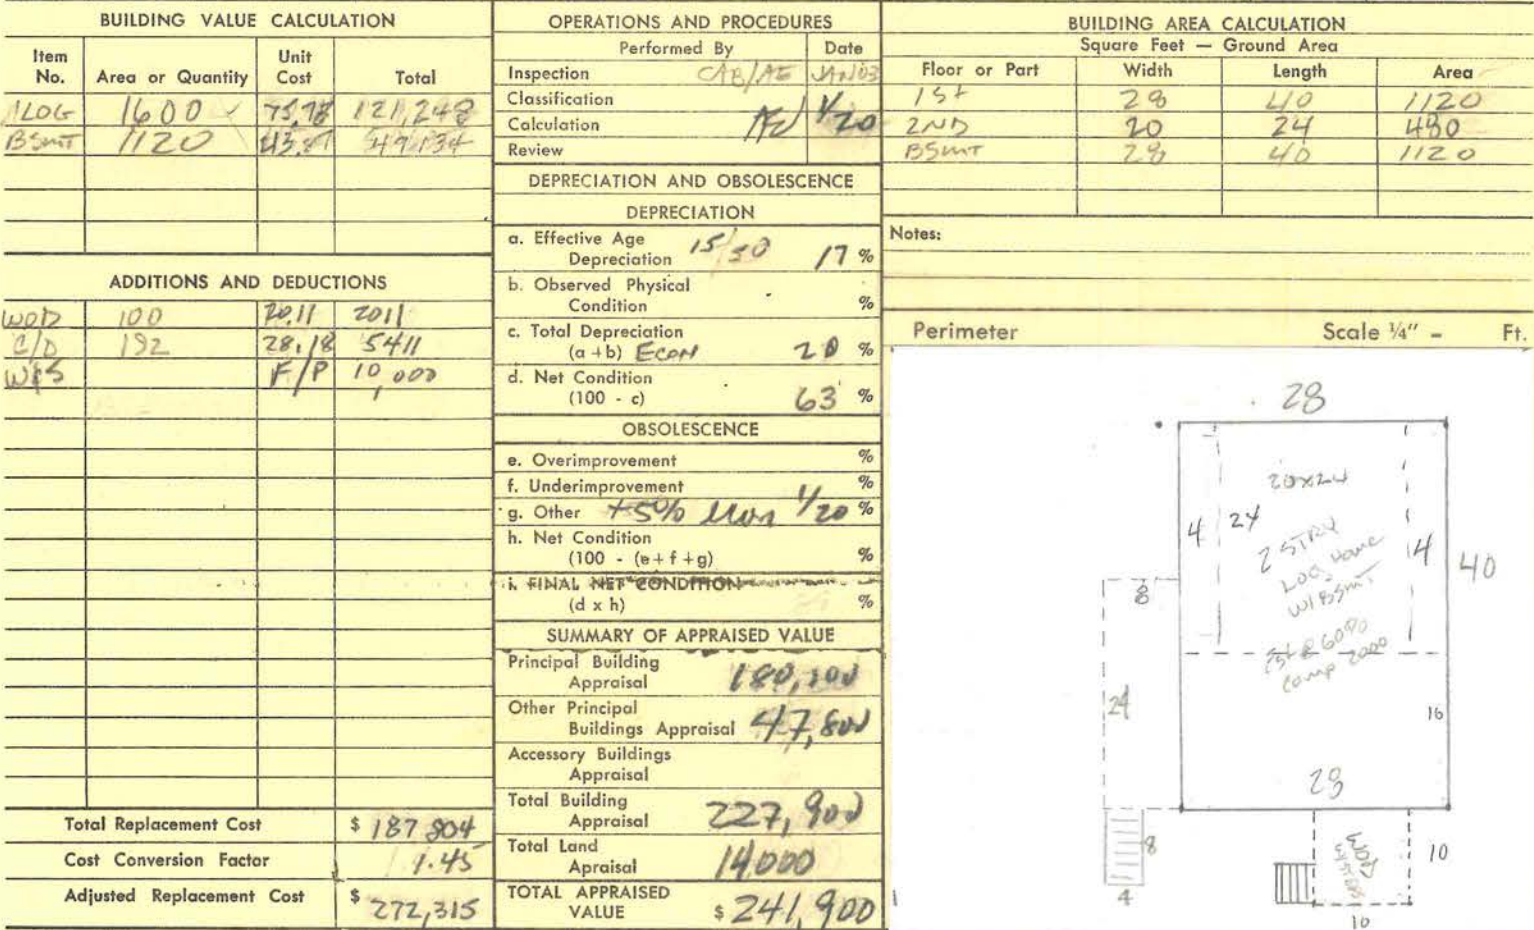 BUILDING VALUE CALCULATION
Item No. Area or Quantity Unit Cost Total
1LOG 1600 75.78 121,248
BSMT 1120 43.87 49134
ADDITIONS AND DEDUCTIONS
WOD 100 20.11 2011
C/D 192 28.18 5411
F/P 10,000
Total Replacement Cost $ 187 804
Cost Conversion Factor 1.45
Adjusted Replacement Cost $ 272,315
OPERATIONS AND PROCEDURES
Performed By Date
Inspection CAB/AE JAN03
Classification
Calculation 1/20
Review
DEPRECIATION AND OBSOLESCENCE
DEPRECIATION
a. Effective Age
Depreciation 15/50 17 %
b. Observed Physical
Condition %
c. Total Depreciation
(a+b) Econ 20 %
d. Net Condition
(100 - c) 63 %
OBSOLESCENCE
e. Overimprovement %
f. Underimprovement %
g. Other +5% 1/20 %
h. Net Condition
(100 - (e+f+g) %
i. FINAL NET CONDITION
(d x h) %
SUMMARY OF APPRAISED VALUE
Principal Building
Appraisal 180,100
Other Principal
Buildings Appraisal 47,800
Accessory Buildings
Appraisal
Total Building
Appraisal 227,900
Total Land
Apraisal 14000
TOTAL APPRAISED
VALUE $ 241,900
BUILDING AREA CALCULATION
Square Feet — Ground Area
Floor or Part Width Length Area
1st 28 40 1120
2ND 20 24 480
BSMT 28 40 1120
Notes:
Perimeter Scale ¼" – Ft.
28
20x24
4 24 2 STRY 4 40
LOG Home
W/ BSMT
8
Est @ 60%
Comp 2000
24 16
28
8 WOD 10
4 10